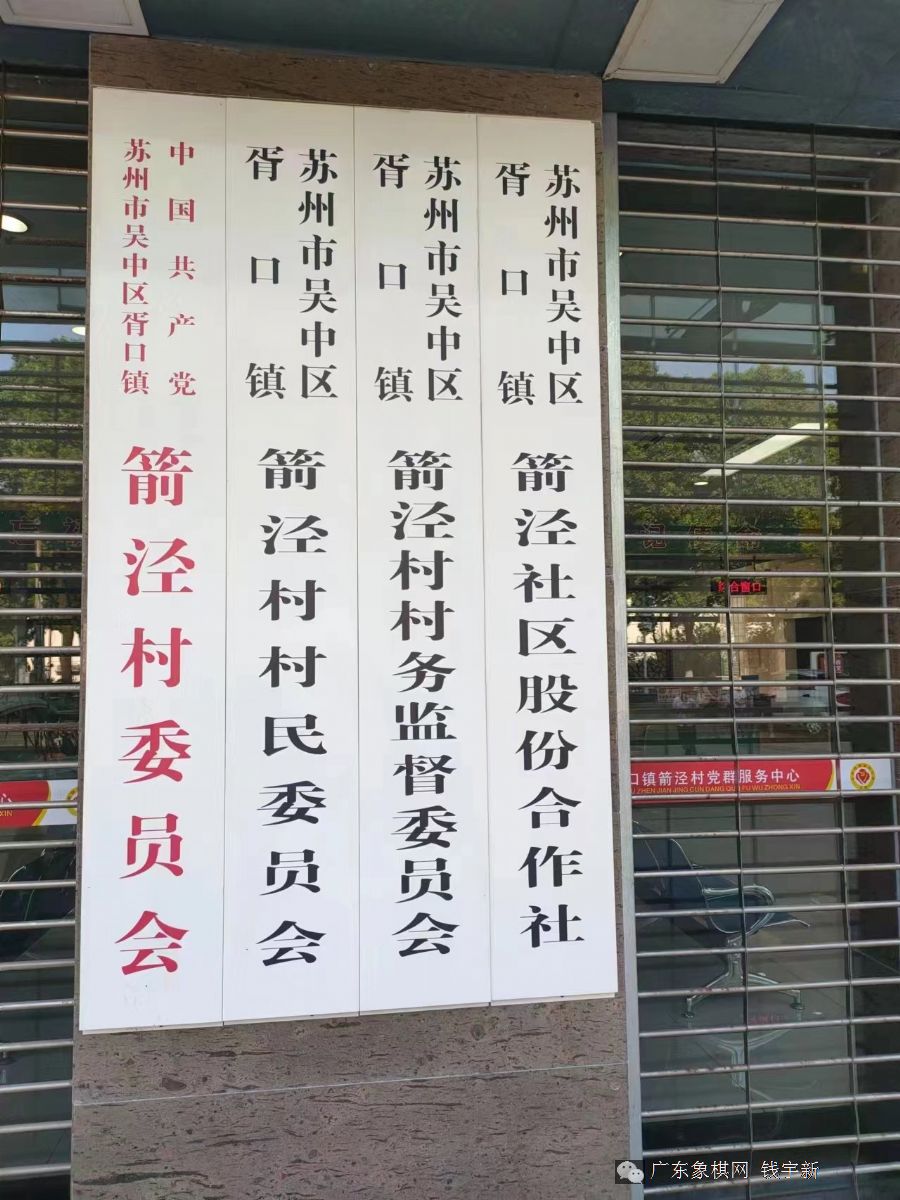 中国共产党
苏州市吴中区胥口镇
箭泾村委员会
苏州市吴中区
胥口镇
箭泾村村民委员会
苏州市吴中区
胥口镇
箭泾村村务监督委员会
苏州市吴中区
胥口镇
箭泾社区股份合作社
综合窗口
口镇箭泾村党群服务中心
ZHEN JIAN JING CUN DANG QUN FU WU ZHONG XIN
心
XIN
广东象棋网 钱宇新